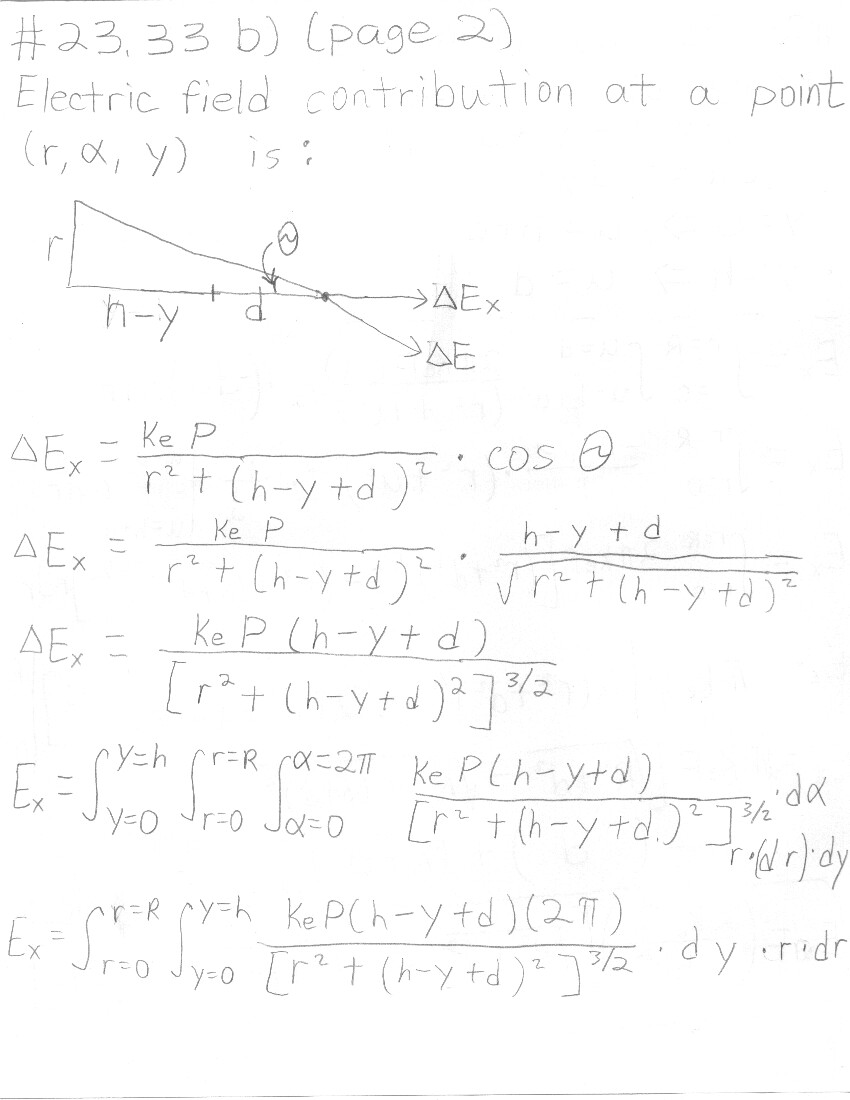 #23.33 b) (page 2)
Electric field contribution at a point
(r, α, y) is:
r
θ
h-y
d
ΔEx
ΔE
ΔEx = ke P / r² + (h-y+d)² · cos θ
ΔEx = ke P / r² + (h-y+d)² · h-y+d / √r² + (h-y+d)²
ΔEx = ke P (h-y+d) / [r² + (h-y+d)²]^3/2
Ex = ∫y=0^y=h ∫r=0^r=R ∫α=0^α=2π ke P(h-y+d) / [r² + (h-y+d.)²]^3/2 · dα
r·(dr)·dy
Ex = ∫r=0^r=R ∫y=0^y=h ke P(h-y+d)(2π) / [r² + (h-y+d)²]^3/2 · dy · r·dr